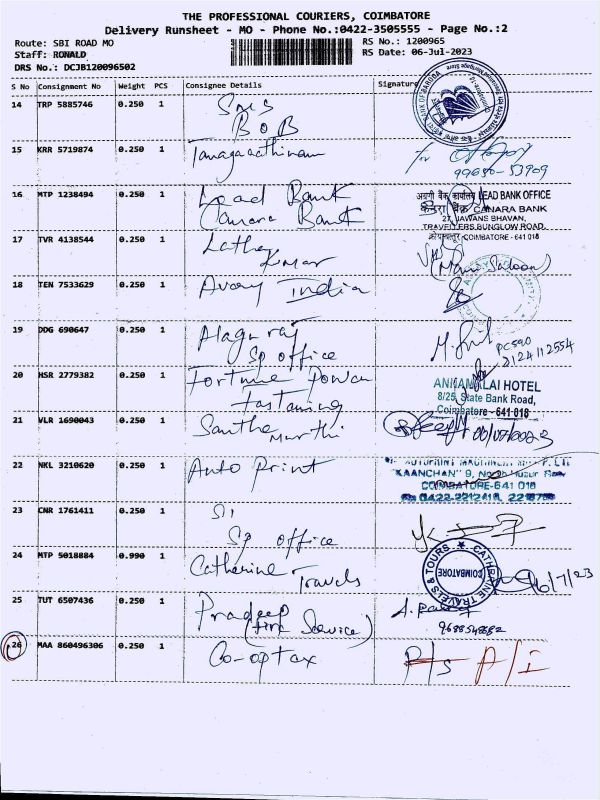 THE PROFESSIONAL COURIERS, COIMBATORE
Delivery Runsheet - MO - Phone No.:0422-3505555 - Page No.:2
Route: SBI ROAD MO
RS No.: 1200965
Staff: RONALD
RS Date: 06-Jul-2023
DRS No.: DCJB120096502
S No Consignment No Weight PCS Consignee Details Signature
14 TRP 5885746 0.250 1 SMS
BOB
BANK OF BARODA
15 KRR 5719874 0.250 1
for
99680-53909
16 MTP 1238494 0.250 1 Lead Bank
Canara Bank
अग्रणी बैंक कार्यालय LEAD BANK OFFICE
केनरा बैंक CANARA BANK
27, JAWANS BHAVAN,
TRAVELLERS BUNGLOW ROAD,
कोयम्बत्तूर COIMBATORE - 641 018
17 TVR 4138544 0.250 1 Latha
Kumar
(Mani Saloon)
18 TEN 7533629 0.250 1 Avery India
19 DDG 690647 0.250 1 Alagu raj
Sp office
PC590
2124112554
20 HSR 2779382 0.250 1 Fortune Power
Fastening
ANNAMALAI HOTEL
8/25, State Bank Road,
Coimbatore - 641 018
21 VLR 1690043 0.250 1 Santha
Murthi
22 NKL 3210620 0.250 1 Auto Print
"KAANCHAN" 9, North Huzur Road
COIMBATORE-641 018
23 CNR 1761411 0.250 1 SI
Sp office
24 MTP 5018884 0.990 1 Catherine
Travels
CATHRINE TRAVELS & TOURS
COIMBATORE
6/7/23
25 TUT 6507436 0.250 1 Pradeep
(Fire Service)
9688548682
26 MAA 860496306 0.250 1 Co-optax
R/s A/I